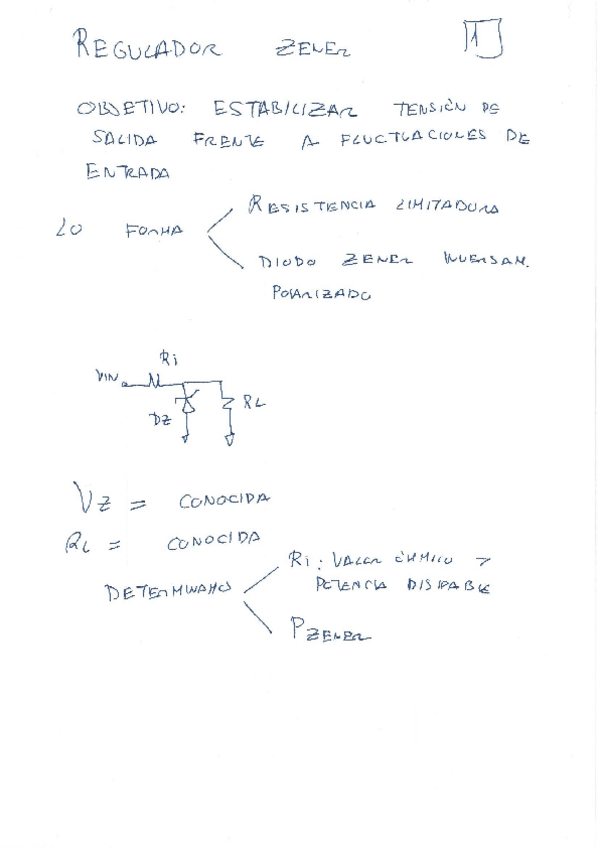 REGULADOR ZENER
1
OBJETIVO: ESTABILIZAR TENSIÓN DE
SALIDA FRENTE A FLUCTUACIONES DE
ENTRADA
LO FORMA
RESISTENCIA LIMITADORA
DIODO ZENER INVERSAM.
POLARIZADO
Ri
VIN
RL
DZ
VZ = CONOCIDA
RL = CONOCIDA
DETERMINAMOS
Ri: VALOR ÓHMICO Y
POTENCIA DISIPABLE
PZENER